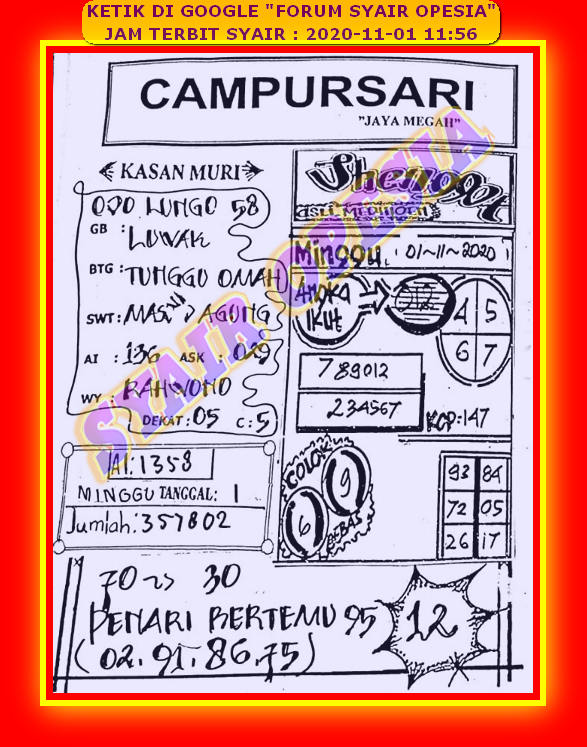 KETIK DI GOOGLE "FORUM SYAIR OPESIA"
JAM TERBIT SYAIR : 2020-11-01 11:56
CAMPURSARI
"JAYA MEGAH"
KASAN MURI
OJO LUNGO 58
GB : LUWAK
BTG : TUNGGU OMAH
SWT : MAS AGUNG
AI : 136 ASK : 029
WY : RAHWONO
DEKAT : 05 C : 5
AI : 1358
MINGGU TANGGAL : 1
Jumlah : 357802
Minggu, 01-11-2020
ANGKA
IKUT
012
4 5
6 7
789012
234567
KOP:147
COLOK
9
6
BEBAS
93 84
72 05
26 17
70 30
PENARI BERTEMU 95
(02.91.86.75)
12
SYAIR OPESIA